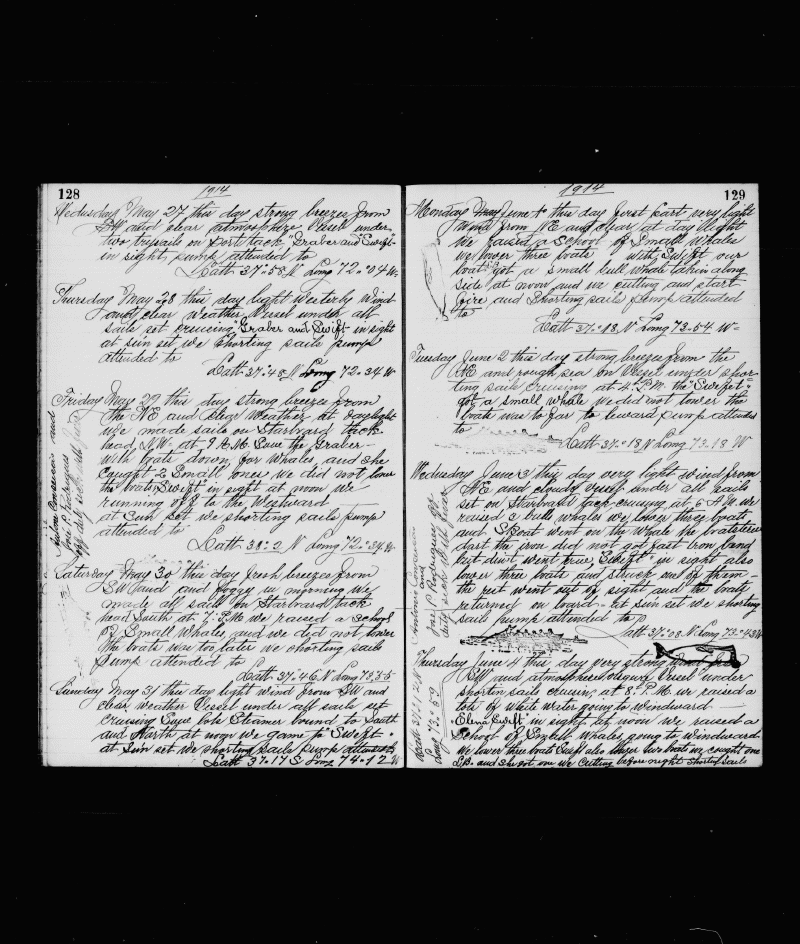 128
1914
Wedusday May 27 this day strong breezes from
SW and clear atmospheze Vessel under
two trysails on Port tack "Graber and Swift"
in sight pump attended to
Latt 37-58 N Long 72-04 W
Thursday May 28 this day light Westerly Wind
and clear weather Vessel under all
sails set cruicing Graber and Swift in sight
at sun set we Shorting sails pump
attended to
Latt 37-48 N Long 72-24 W
Friday May 29 this day strong breezes from
the NE and Weather at daylight
we made sails on Starbard tack
head N.W. at 9 A.M. Saw the Graber
with boats down for Whales and she
Caught 2 Small ones we did not lower
the boats Swift in sight at noon we
running off to the Westward
at Sun set we shorting sails pump
attended to
Latt 38-2 N Long 72-34 W
and
Jose P. Rodrigues
off duty sick with fever
Saturday May 30 this day fresh breezes from
SW and foggy in morning we
made all sails on Starbard tack
head South at P.M. we raised a School
of Small Whales and we did not lower
the boats was too later we shorting sails
pump attended to
Latt 37-46 N Long 73-55
Sunday May 31 this day light wind from SW and
clear weather Vessel under all sails set
Cruising Steamer bound to South
and North at noon we game to Swift
at Sun set we shorting sails pump attended
Latt 37-17 Long 74-12 W
1914
129
Monday May June 1st this day first part very light
Wind from NE and clear at day light
we raised a School of Small Whales
we lower three boats with Swift our
boats got a small bull whale taken along
side at noon and we cutting and start
fire and Shorting sails pump attended
to
Latt 37-18 N Long 73-54 W
Tuesday June 2 this day strong breezes from the
NE and rough sea on Vessel under shor
ting sails cruising at 4 P.M. the "Swift"
got a small whale we did not lower the
boats was to far to leward pump attended
to
Latt 37-18 N Long 73-18 W
Wedusday June 3 this day very light wind from
NE and cloudy Vessel under all sails
set on Starboard tack cruising at 6 A.M. we
raised 3 bull whales we lower three boats
and S. Boat went on the whale the boatsterer
dart the iron did not got fast iron bend
but din't went true Swift in sight also
lower three boats and struck one of them
the rest went out of sight and the boats
returned on board at sun set we shorting
sails pump attended to
Latt 37-08 N Long 73-43 W
Antonio
and
Jose P. Rodrigues off
duty sick with fever
Thursday June 4 this day very strong
SW and atmospheze Vessel under
shortin sails cruising at 8 P.M. we raised a
lots of white water going to windward
"Swift" in sight at noon we raised a
School of Whales going to windward
we lower three boats Swift also lower our boats we caught one
S.B. and she got one we Cutting before night short sails
Latt 37-12 N
Long 73-59